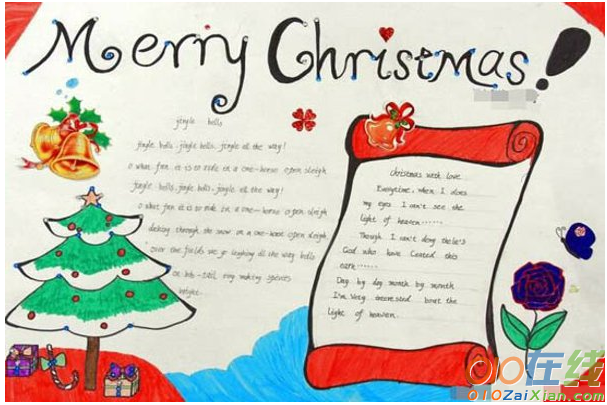 Merry Christmas!
jingle bells
jingle bells, jingle bells, jingle all the way!
O what fun it is to ride in a one-horse open sleigh
jingle bells, jingle bells, jingle all the way!
O what fun it is to ride in a one-horse open sleigh
dashing through the snow in a one-horse open sleigh
over the fields we go laughing all the way bells
on bob-tail ring making spirits
bright.
Christmas with love
Everytime, when I does
my eyes I can't see the
light of heaven......
Though I can't dong the
God who have Coated this
Day by day month by month
I'm very interested bout the
light of heaven.
010在线
010ZaiXian.com